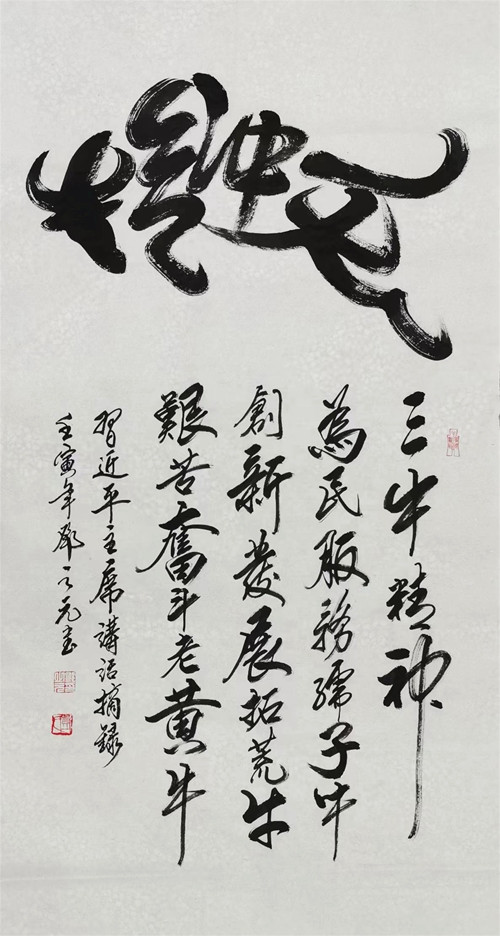 三牛精神
為民服務孺子牛
創新發展拓荒牛
艱苦奮斗老黄牛
習近平主席講話摘録
壬寅年之元書